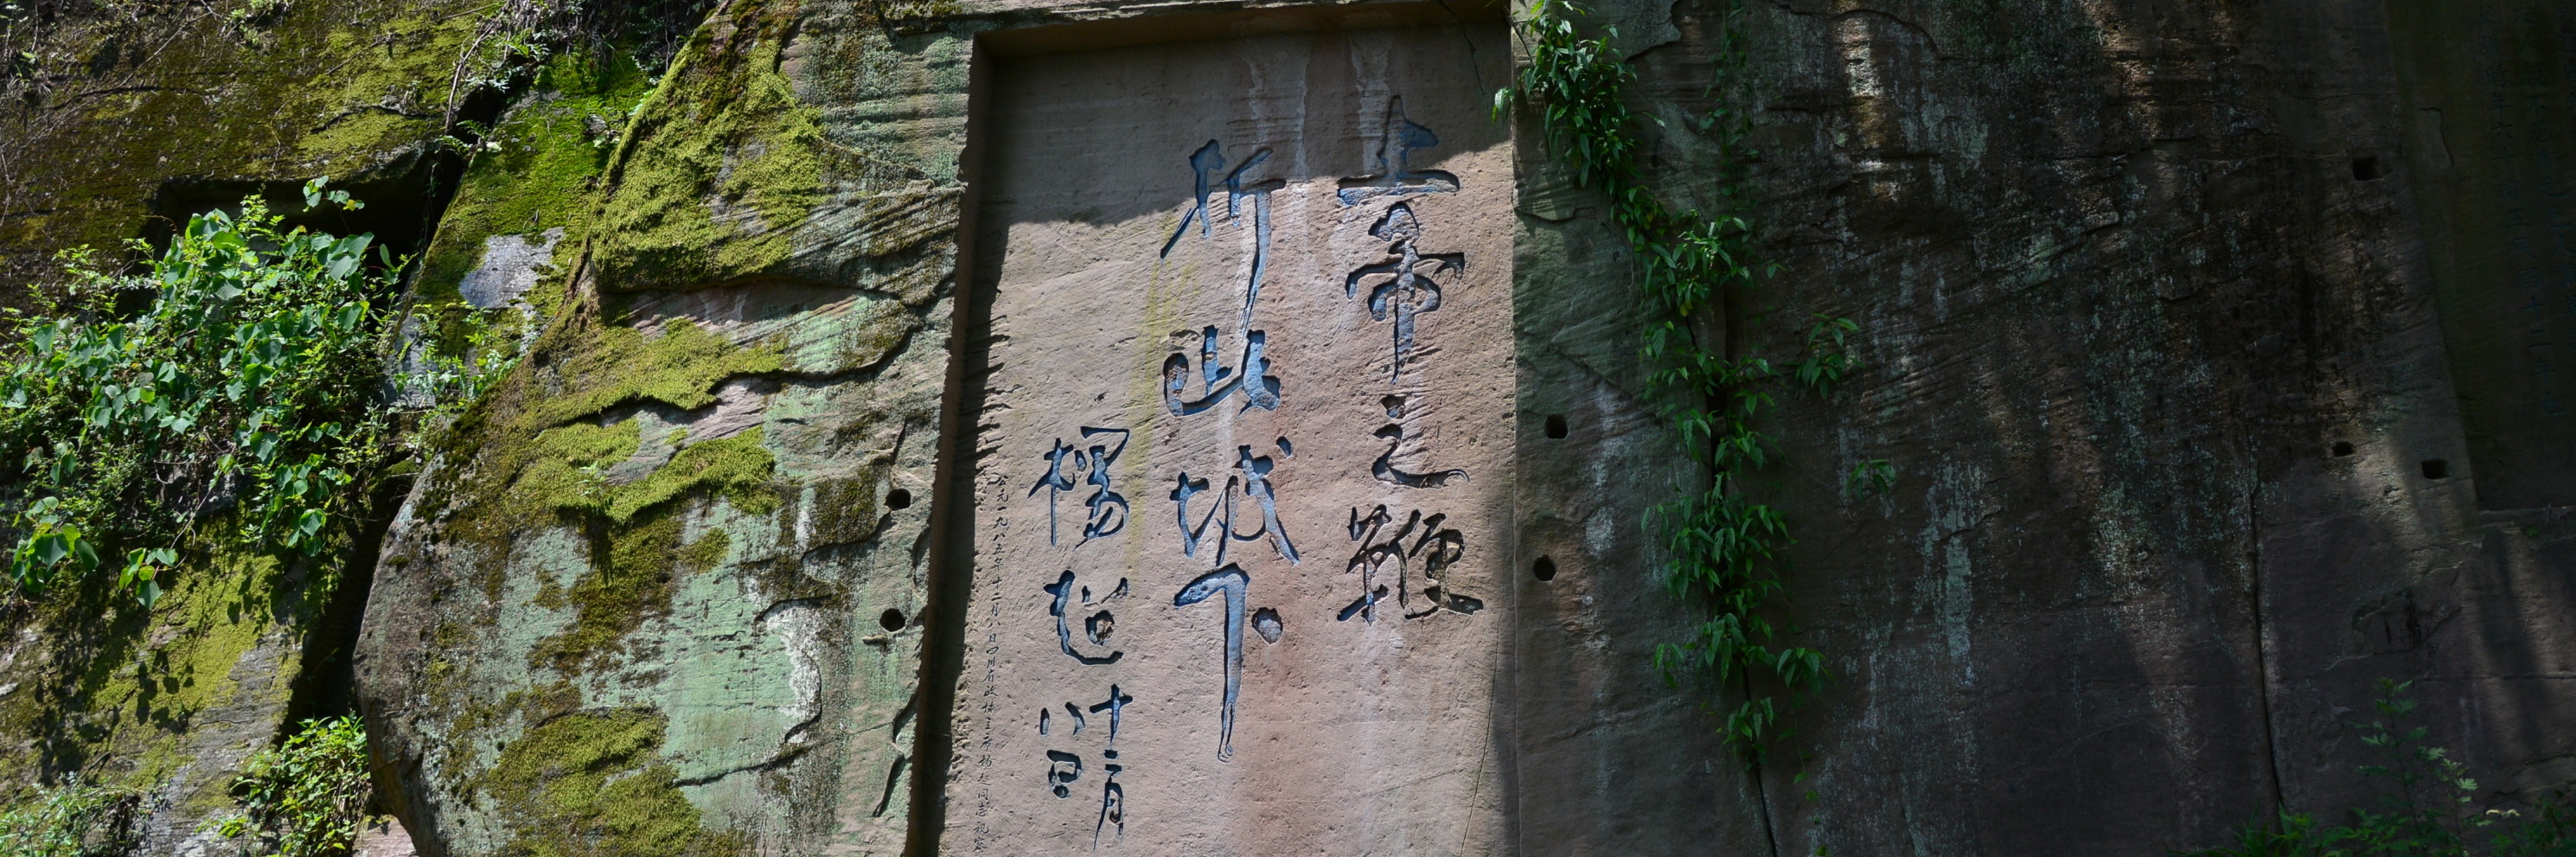 上帝之鞭
折此城下
楊超 十二月
八日
公元一九八五年十二月八日四川省政协主席杨超同志视察